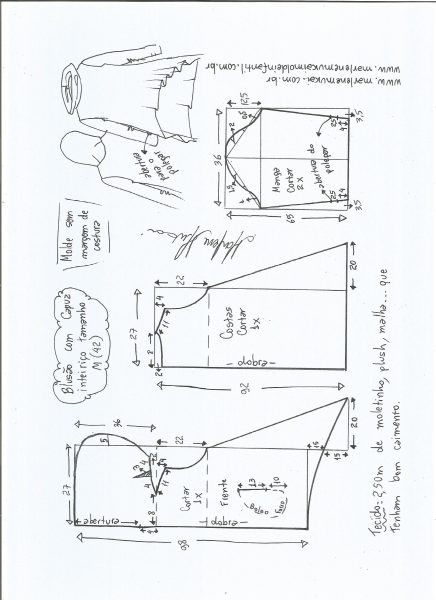 www.marlenemukai.com.br
www.marlenemukaimoldeinfantil.com.br
abertura
para o
polegar
Molde sem
margem de
costura
Blusão com Capuz
inteiriço tamanho
M (42)
12,5
36
2
2
65
25
4
3,5
25
4
3,5
Manga
Cortar
2x
abertura do
polegar
22
4
11
27
8
2
Costas
Cortar
1x
dobra
92
20
36
5
27
abertura
22
4
11
8
4
Cortar
1x
Frente
dobra
13
10
98
15
15
20
Tecido: 2,50m de moletinho, plush, malha... que
Tenham bom caimento.